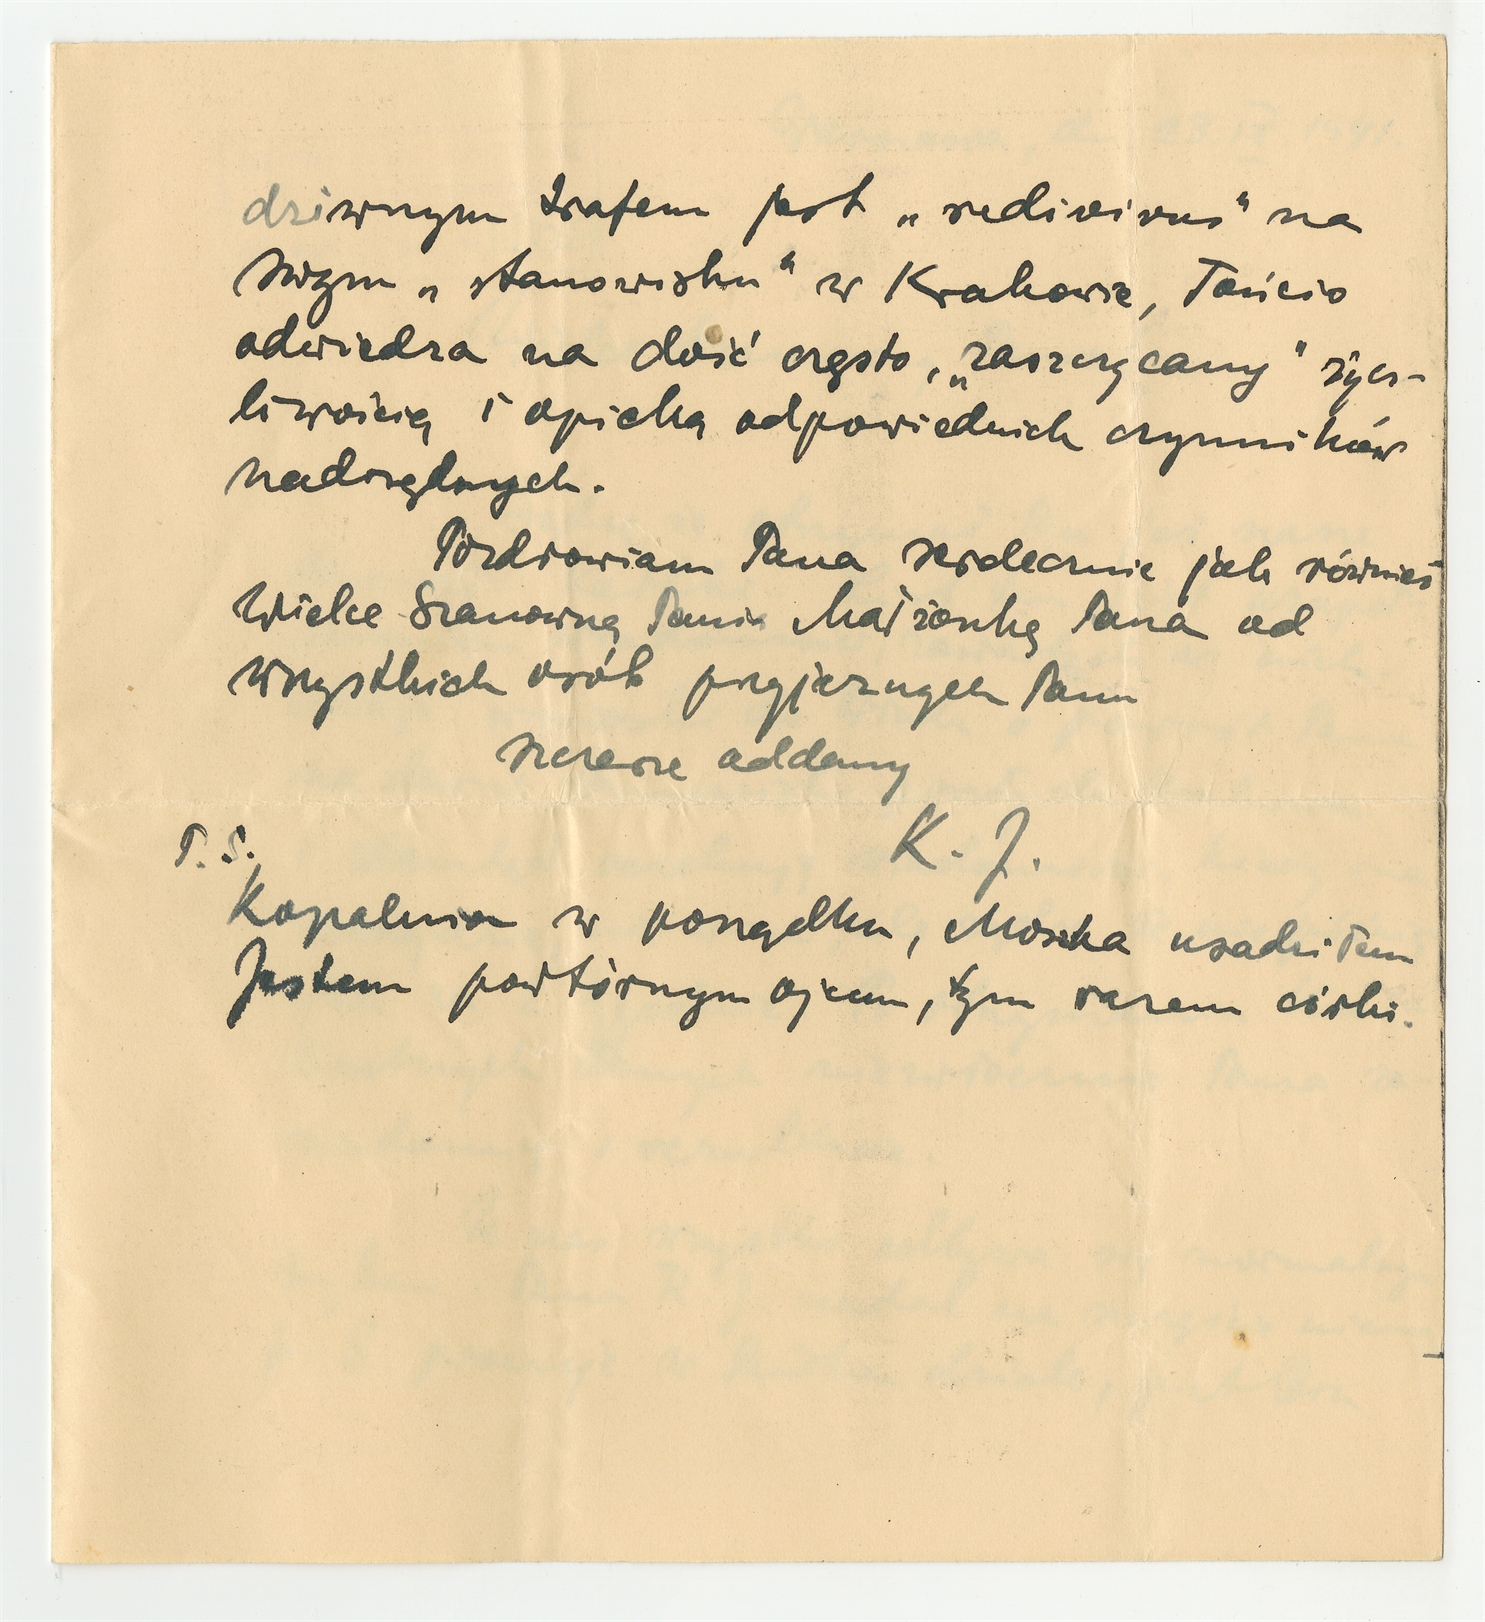 dziwnym trafem jest „redivivus" na
swym „stanowisku" w Krakowie, Tońcio
odwiedza na dość często, „zaszczycany" życz-
liwością i opieką odpowiednich czynników
nadrzędnych.
Pozdrowiam Pana serdecznie jak również
Wielce Szanowną Panią Małżonkę Pana od
wszystkich osób przyjaznych Panu
szczerze oddany
K. J.
P. S.
Kopalnia w porządku, Moszka usadziłem
Jestem powtórnym ojcem, tym razem córki.